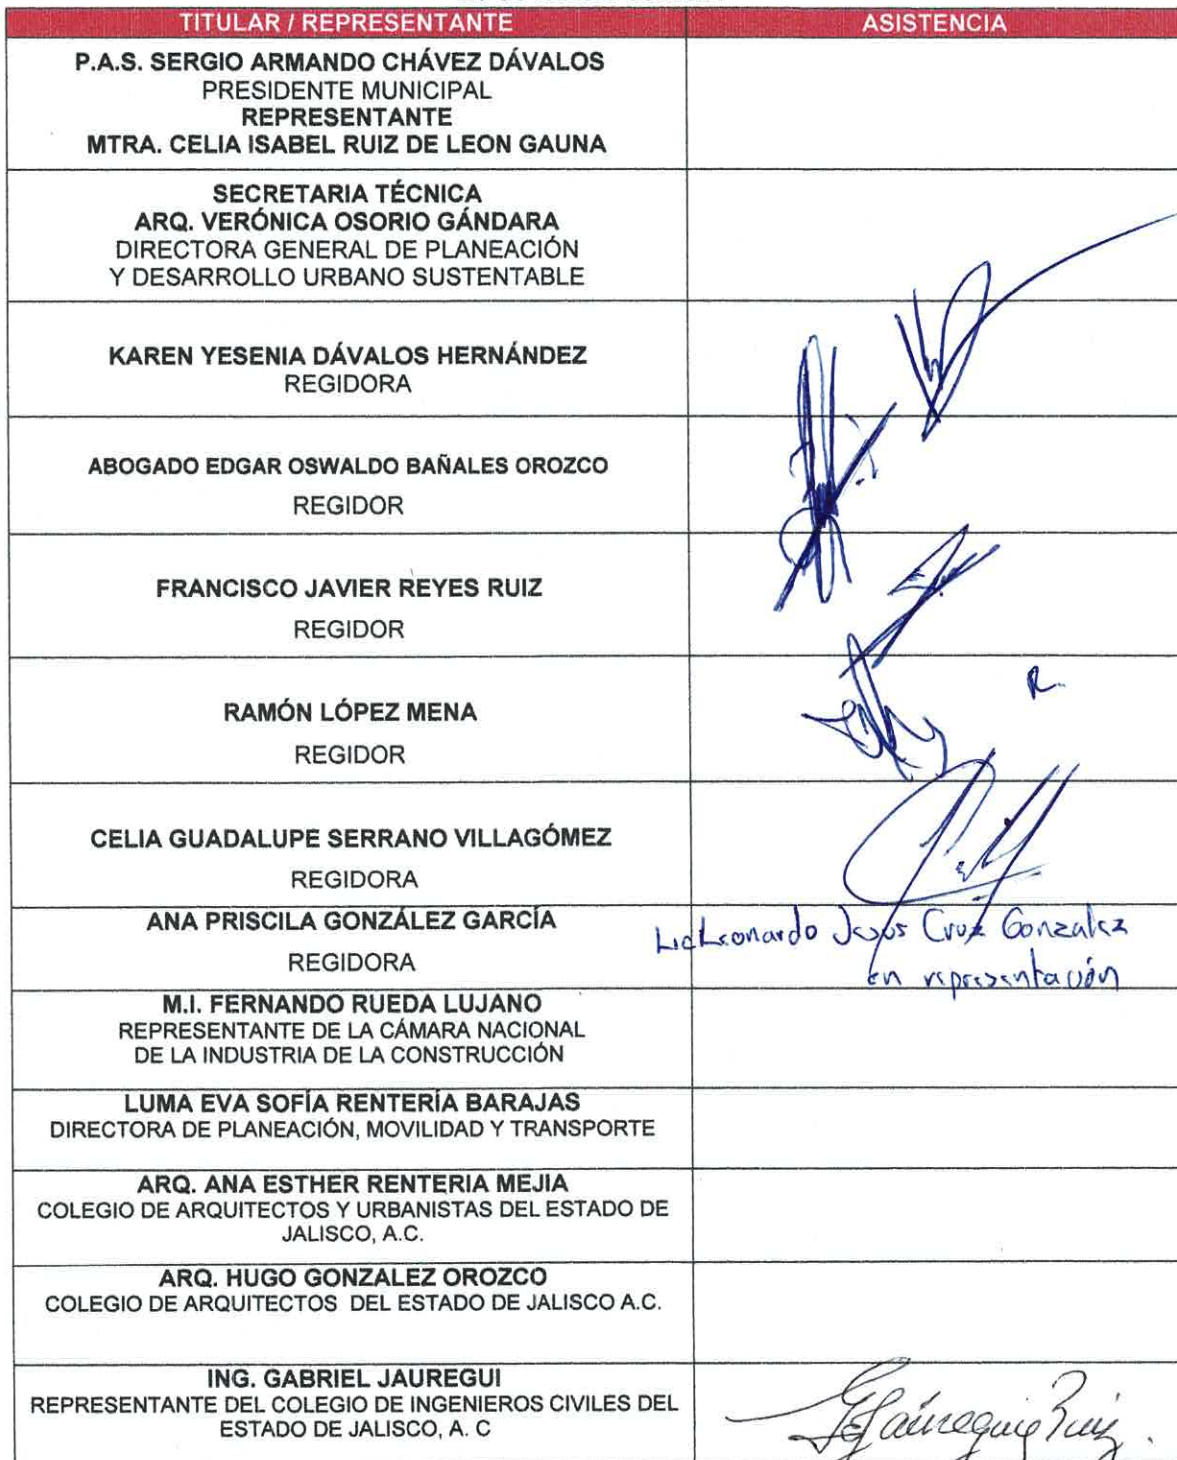 TITULAR / REPRESENTANTE
ASISTENCIA
P.A.S. SERGIO ARMANDO CHÁVEZ DÁVALOS
PRESIDENTE MUNICIPAL
REPRESENTANTE
MTRA. CELIA ISABEL RUIZ DE LEON GAUNA
SECRETARIA TÉCNICA
ARQ. VERÓNICA OSORIO GÁNDARA
DIRECTORA GENERAL DE PLANEACIÓN
Y DESARROLLO URBANO SUSTENTABLE
KAREN YESENIA DÁVALOS HERNÁNDEZ
REGIDORA
ABOGADO EDGAR OSWALDO BAÑALES OROZCO
REGIDOR
FRANCISCO JAVIER REYES RUIZ
REGIDOR
RAMÓN LÓPEZ MENA
REGIDOR
R.
CELIA GUADALUPE SERRANO VILLAGÓMEZ
REGIDORA
ANA PRISCILA GONZÁLEZ GARCÍA
REGIDORA
Lic Leonardo Jesús Cruz Gonzalez
en representación
M.I. FERNANDO RUEDA LUJANO
REPRESENTANTE DE LA CÁMARA NACIONAL
DE LA INDUSTRIA DE LA CONSTRUCCIÓN
LUMA EVA SOFÍA RENTERÍA BARAJAS
DIRECTORA DE PLANEACIÓN, MOVILIDAD Y TRANSPORTE
ARQ. ANA ESTHER RENTERIA MEJIA
COLEGIO DE ARQUITECTOS Y URBANISTAS DEL ESTADO DE
JALISCO, A.C.
ARQ. HUGO GONZALEZ OROZCO
COLEGIO DE ARQUITECTOS DEL ESTADO DE JALISCO A.C.
ING. GABRIEL JAUREGUI
REPRESENTANTE DEL COLEGIO DE INGENIEROS CIVILES DEL
ESTADO DE JALISCO, A. C